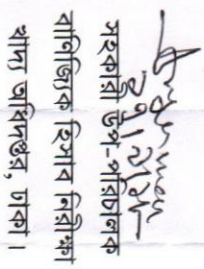 সহকারী উপ-পরিচালক
বাণিজ্যিক হিসাব নিরীক্ষা
খাদ্য অধিদপ্তর, ঢাকা।